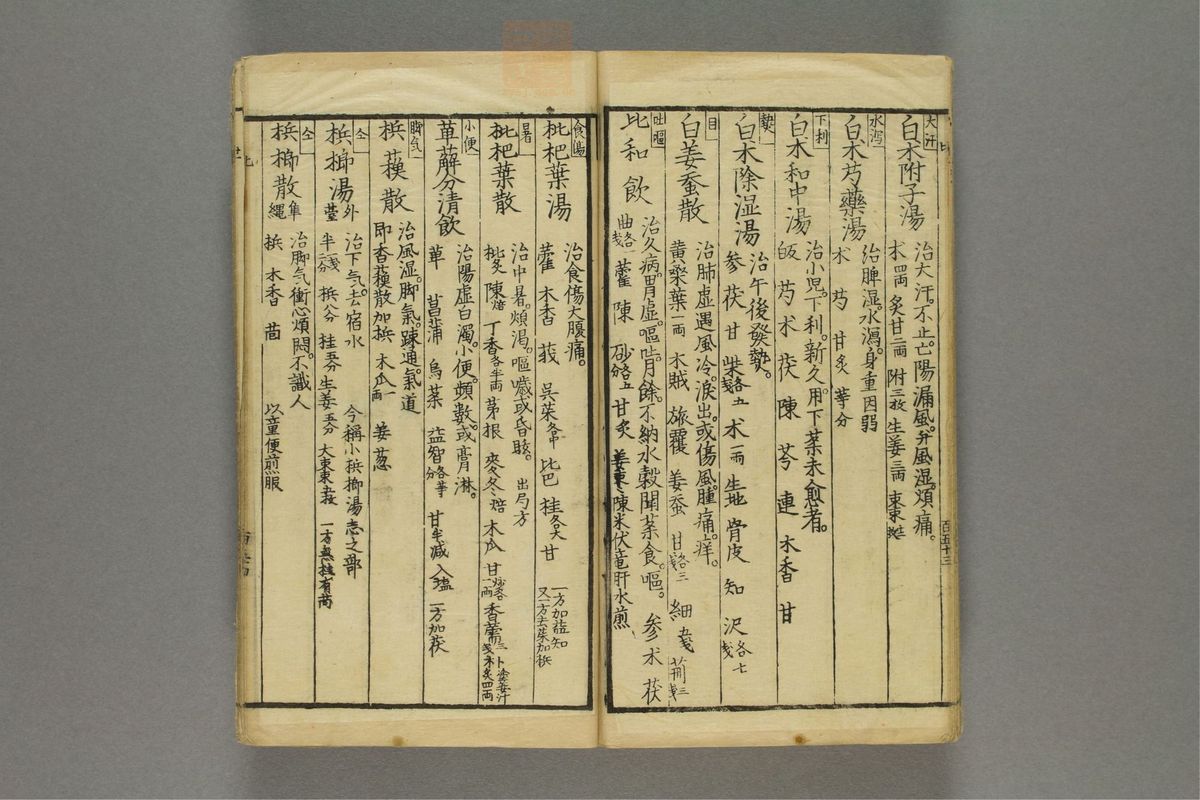 大汗
白朮附子湯
治大汗。不止。亡陽漏風。并風湿。煩痛。
朮四両 炙甘二両 附三枚 生姜三両 棗
水瀉
白朮芍藥湯
治脾湿。水瀉。身重困弱
朮 芍 甘炙 等分
下利
白朮和中湯
治小児。下利。新久。用下薬未愈者。
芍 朮 茯 陳 芩 連 木香 甘
熱
白朮除湿湯
治午後發熱。
参 茯 甘 柴各五戔 朮一両 生地 骨皮 知 沢各七戔
目
白姜蚕散
治肺虚遇風冷。淚出。或傷風。腫痛。痒。
黄桑葉一両 木賊 旋覆 姜蚕 甘各三戔 細五戔 荊三戔
吐嘔
比和飲
治久病。胃虚。嘔。吐月余。不納水穀聞薬食。嘔。 参 朮 茯
曲各一戔 藿 陳 砂各五分 甘炙 姜棗 陳米伏竜肝水煎
百五十三
食傷
枇杷葉湯
治食傷大腹痛。
藿 木香 莪 呉茱 比巴 桂各大 甘 一方加益知
又一方去茱加梹
暑
枇杷葉散
治中暑。煩渴。嘔噦或昏眩。 出局方
枇炙 陳焙 丁香各半両 茅根 麥冬焙 木瓜 甘 香薷
小便
萆薢分清飲
治陽虚白濁。小便。頻数。或膏淋。
萆 菖蒲 烏薬 益智各等分 甘半減 入塩 一方加茯
脚气
梹蘓散
治風湿。脚氣。踈通。氣道
即香蘓散加梹 木瓜一両 姜 葱
仝
梹榔湯 外臺
治下气。去宿水 今稱小梹榔湯志之部
半二戔 梹八分 桂五分 生姜五分 大棗東 一方無桂有茼
仝
梹榔散 準縄
治脚气衝心煩悶。不識人
梹 木香 茴 以童便煎服